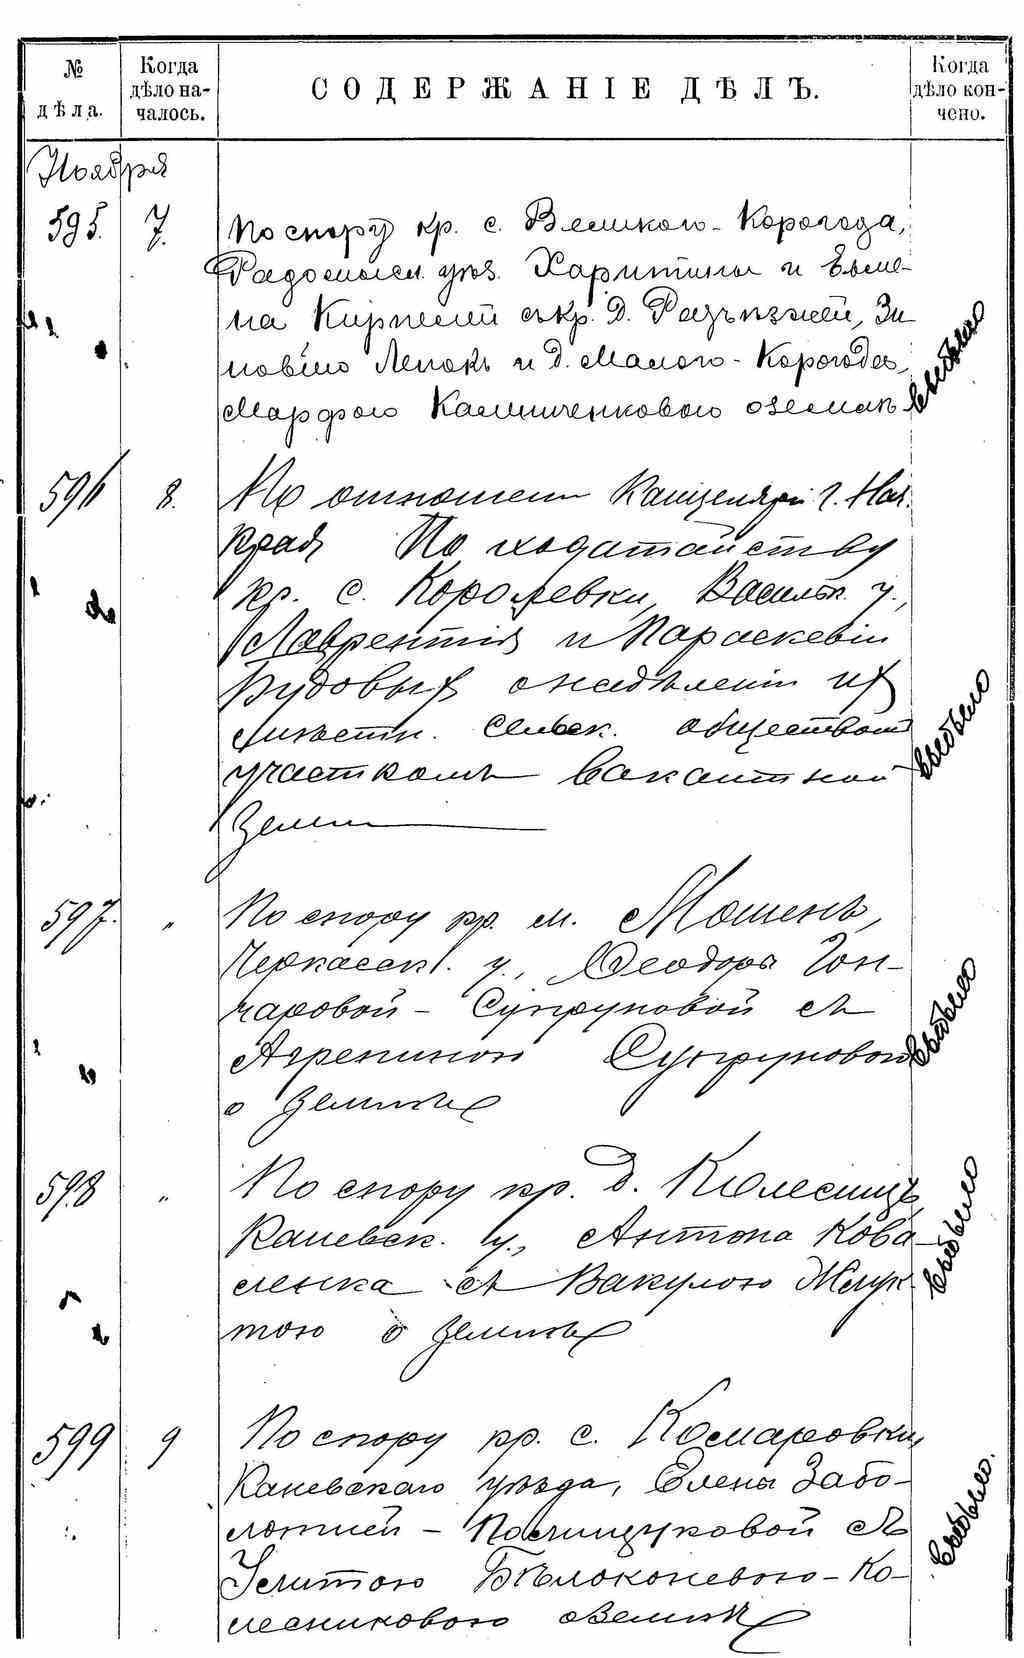 № дѣла.
Когда дѣло началось.
СОДЕРЖАНІЕ ДѢЛЪ.
Когда дѣло кончено.
Ноября
595. 7. По спору кр. с. Великого-Корогода,
Радомысл. уѣз. Харитины и Евме-
на Кирпелей съ кр. д. Разъѣзжей, Зи
новіею Лепокъ и д. Малого-Корогода,
Марфою Калиниченковою о землѣ
выбыло
596 8. По отношенію Канцеляріи Г. Нач.
края По ходатайству
кр. с. Королевки, Васильк. у.,
Лаврентія и Параскевіи
Будовыхъ о надѣленіи ихъ
мѣстн. сельск. обществомъ
участкомъ вакантной
земли
выбыло
597. " По спору кр. м. Мошенъ,
Черкасск. у., Ѳеодоры Гон-
чаровой - Супруновой съ
Агрепиною Супруновою
о землѣ
выбыло
598 " По спору кр. д. Колесищъ
Каневск. у., Антона Кова-
ленка съ Вакулою Жлук-
тою о землѣ
выбыло
599 9 По спору кр. с. Комаровки,
Каневскаго уѣзда, Елены Забо-
лотней - Полищуковой съ
Улитою Бѣлоконевою-Ко-
лесниковою о землѣ
выбыло.